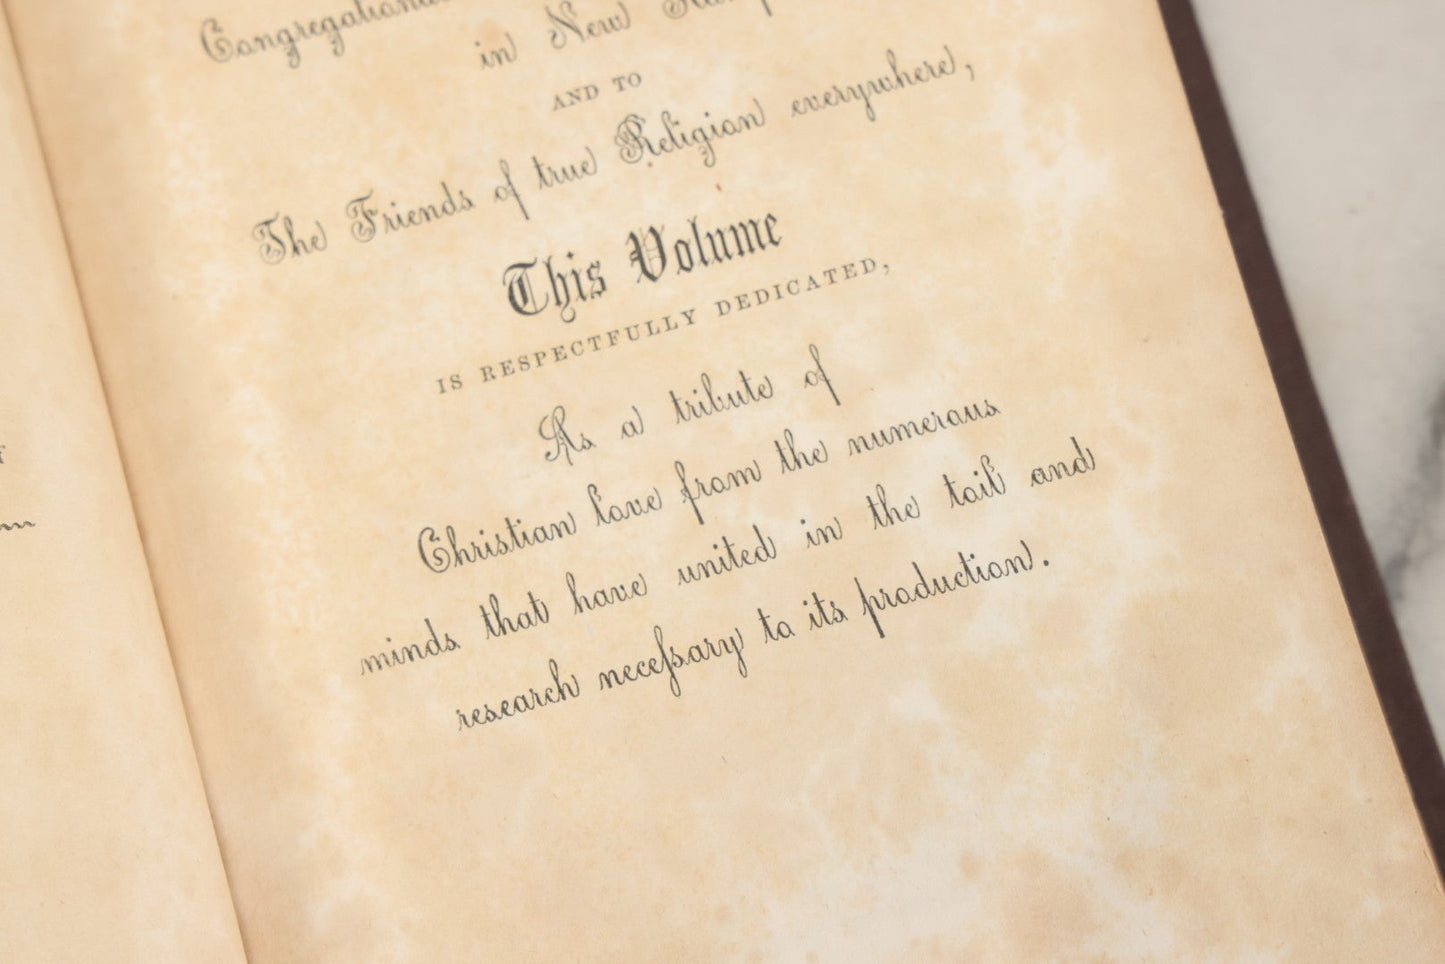 Congregational
in New
AND TO
The Friends of true Religion everywhere,
This Volume
IS RESPECTFULLY DEDICATED,
As a tribute of
Christian love from the numerous
minds that have united in the toil and
research neceſsary to its production.